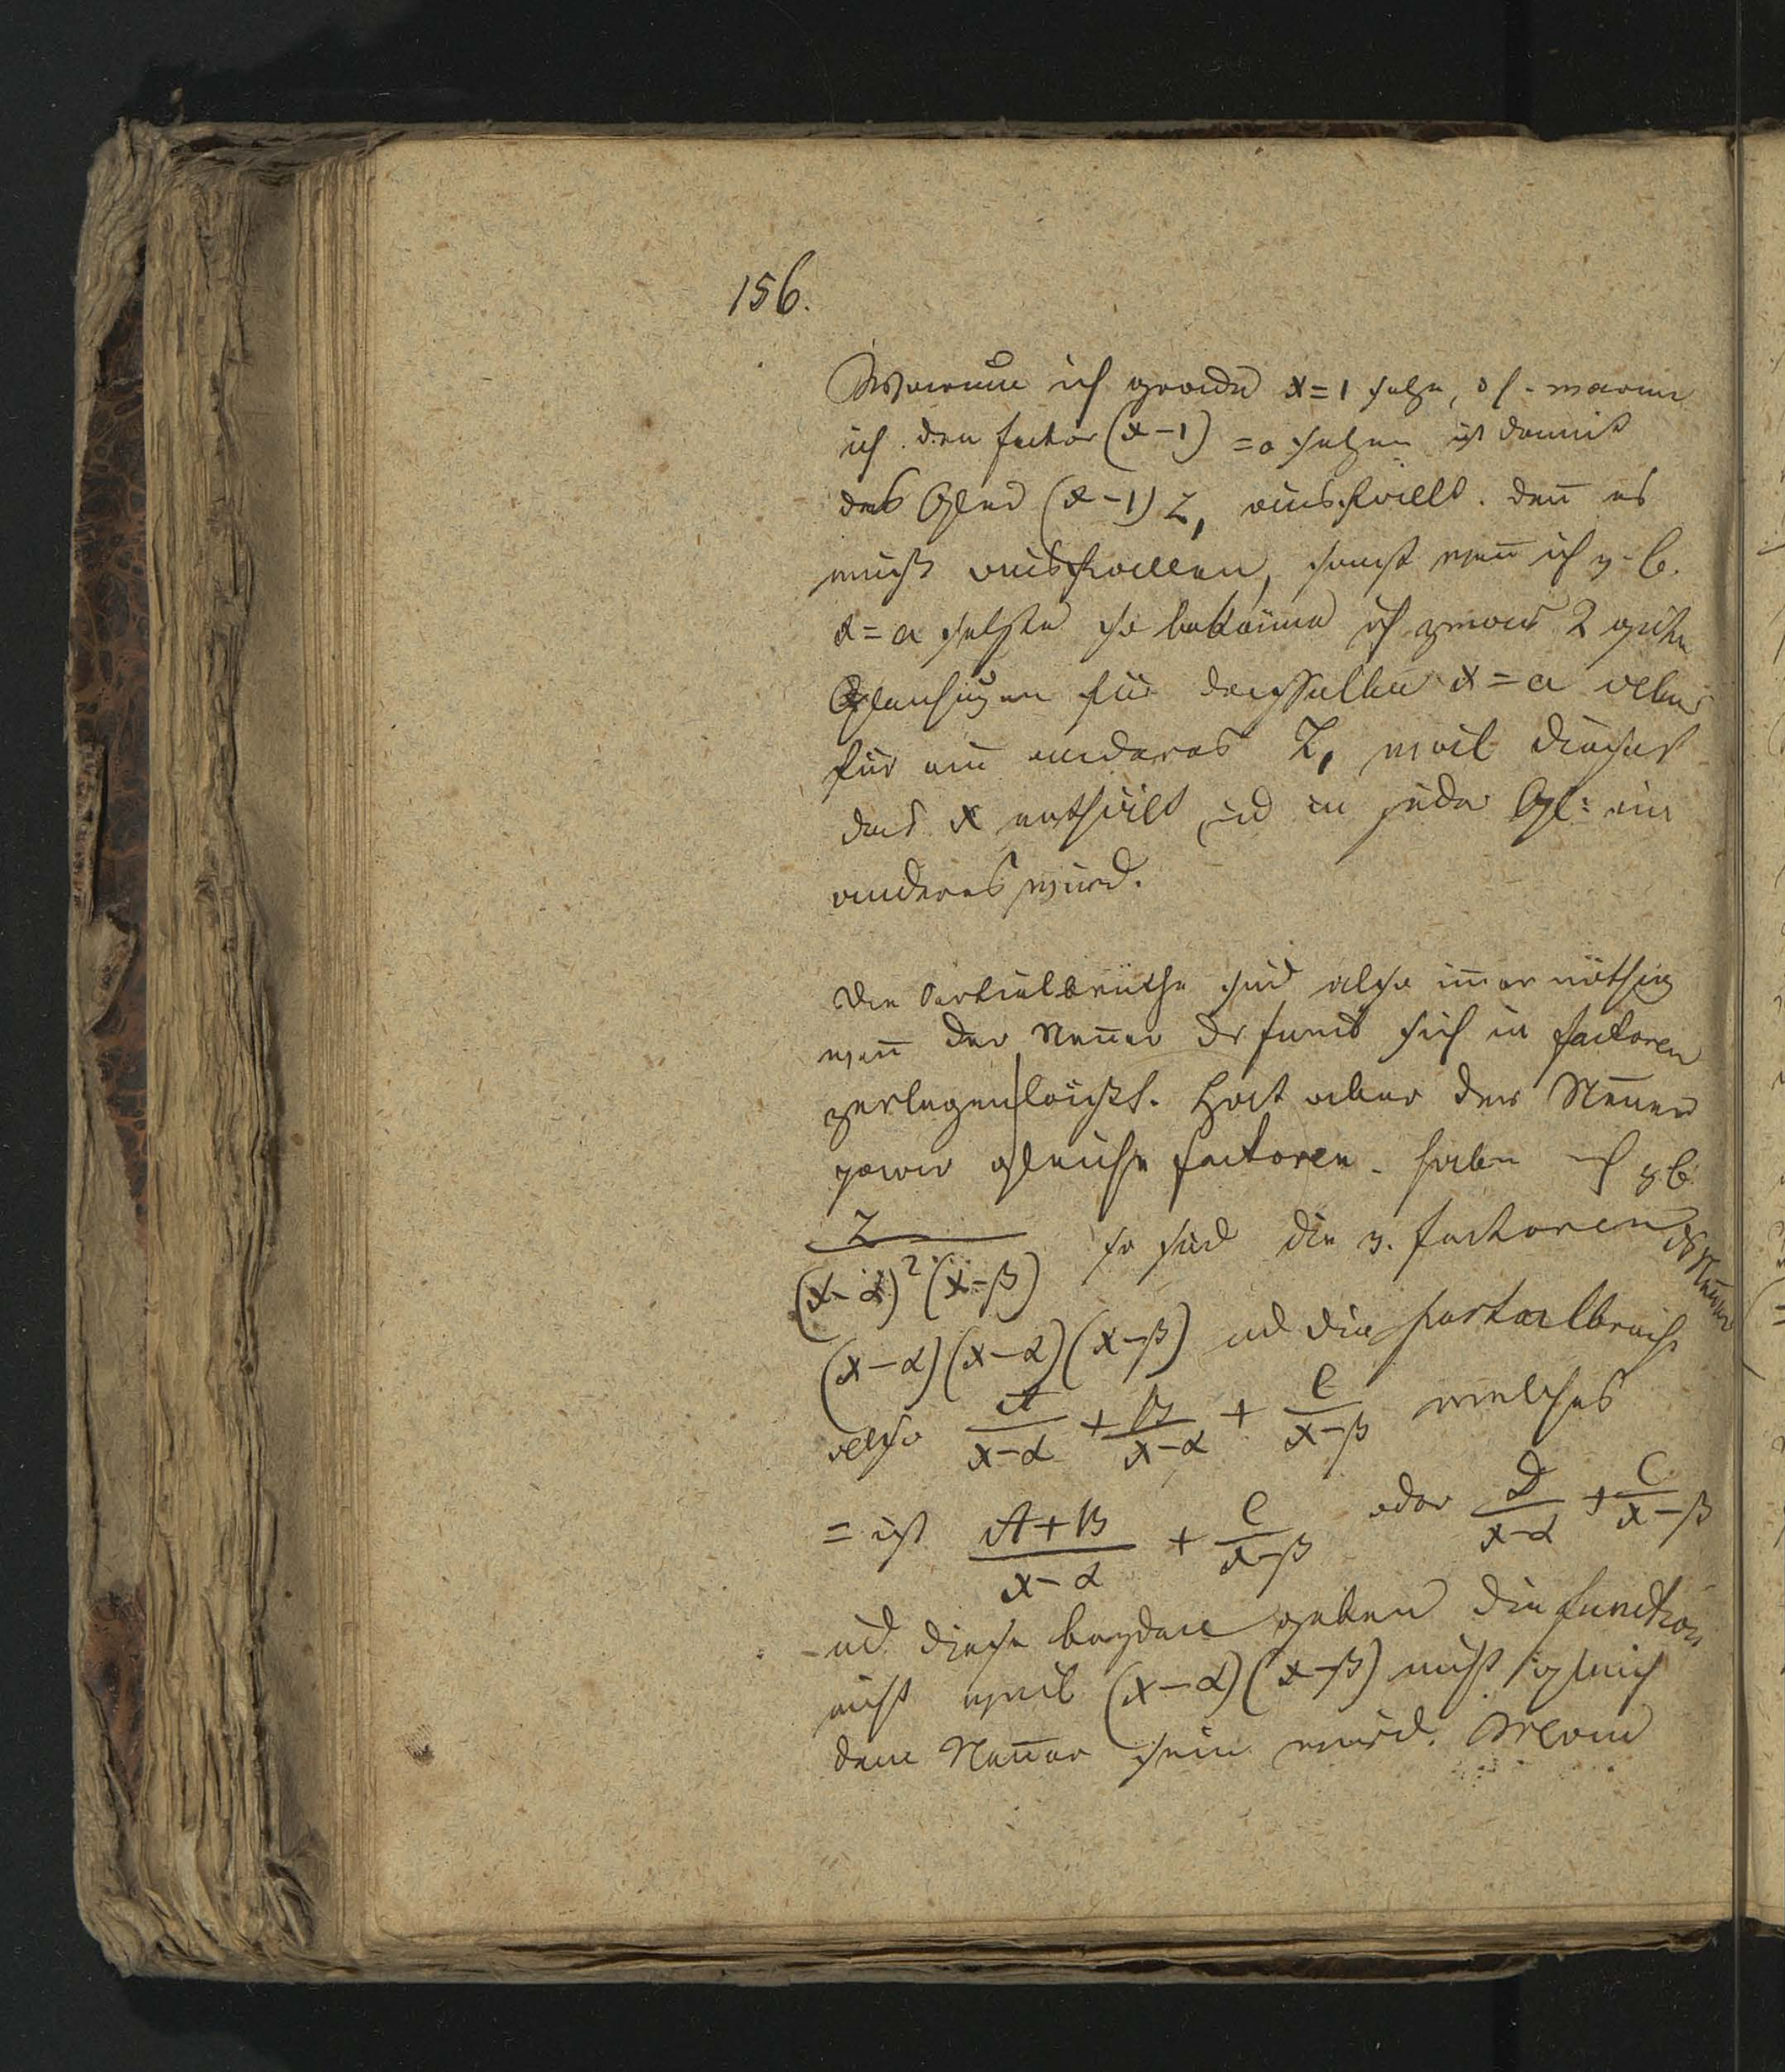 156.
Warum ich grade x=1 setze, d h. warum
ich den factor (x-1) =0 setzen ist damit
das Glied (x-1) Z, ausfällt. den̄ es
muß ausfallen, sonst wen̄ ich z. b.
x=a setzte so bekäme ich zwar 2 gute
Gleichungen für dasselbe x=a aber
für ein anderes Z, weil dieses
das x enthält und in jeder Gl: ein
anderes wird.
Die Partialbrüche sind also im̄er nöthig
wen̄ der Nen̄er der funct sich in factoren
zerlegen läßt. Hat aber der Nen̄er
zwei gleiche factoren. haben ich z.b.
Z / (x-α)² (x-β) so sind die 3. factoren ds Nen̄ers
(x-α)(x-α)(x-β) und die partialbrüche
also A/(x-α) + B/(x-α) + C/(x-β) welches
= ist (A+B)/(x-α) + C/(x-β) oder D/(x-α) + C/(x-β)
und diese beyden geben die function
nicht weil (x-α)(x-β) nicht gleich
dem Nen̄er sein wird. Man